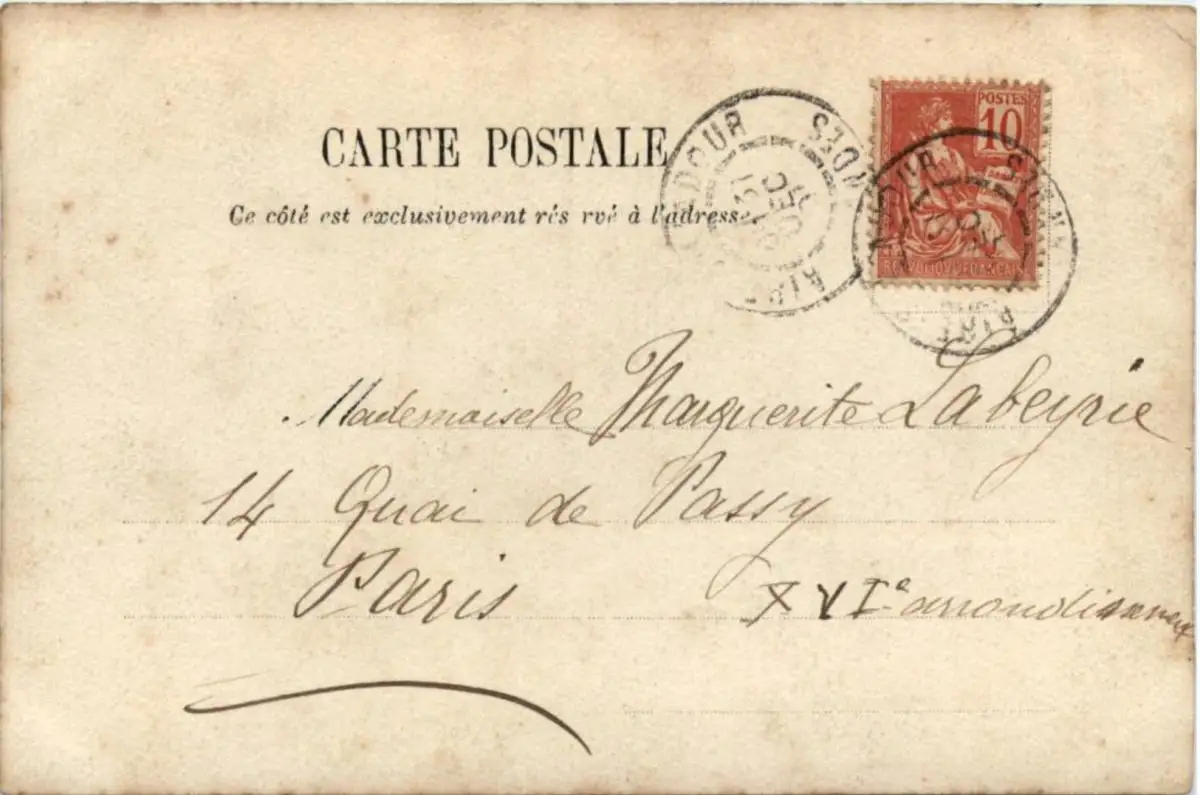 CARTE POSTALE
Ce côté est exclusivement rés rvé à l'adresse
POSTES
10
Mademoiselle Marguerite Labeyrie
14 Quai de Passy
Paris XVIe arrondissement